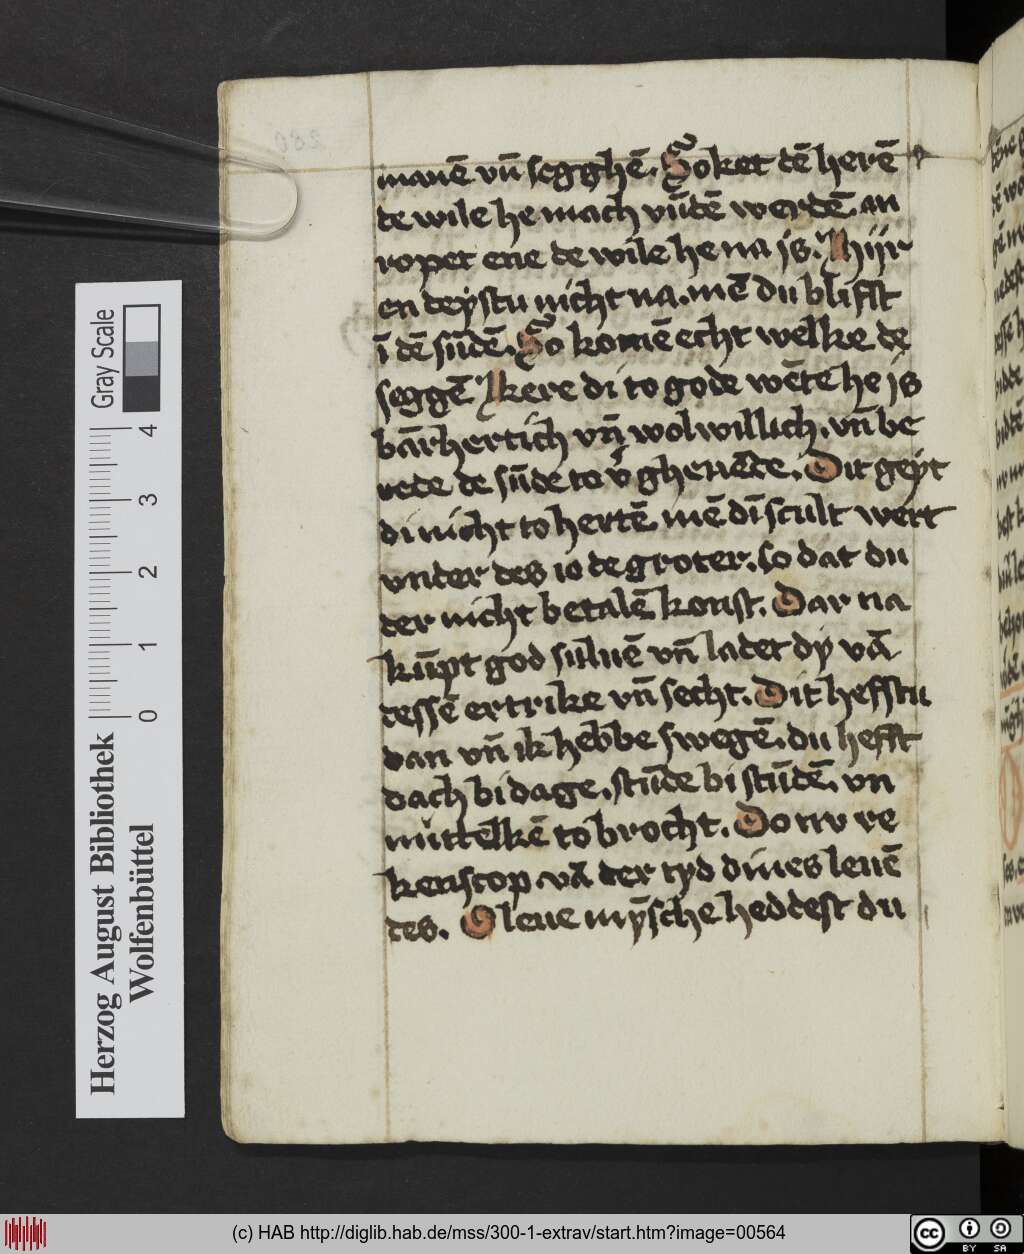 manē vn̄ segghē. Soket dē herē
de wile he mach vūdē werdē. an
ropet ene de wile he na is. Thijr
en deystu nicht na. mē du blifst
ī dē sūdē. So komē echt welke de
seggē kere di to gode wēte he is
bārhertich vn̄ wolwillich. vn̄ be
rede de sūde to v̄gheuēde. Dit geyt
di nicht to hertē mē dī scult wert
vnder des io de groter. so dat du
der nicht betalē konst. Dar na
kūpt god sūluē vn̄ ladet dy vā
dessē ertrike vn̄ secht. Dit hefstu
dan vn̄ ik hebbe swegē. du hefst
dach bi dage. stūde bi stūdē. vn
nuttelkē to brocht. Do nv re
kenscop vā der tyd dines leuē
des. O leue mȳsche heddest du
Gray Scale
4
3
2
1
0
Herzog August Bibliothek
Wolfenbüttel
(c) HAB http://diglib.hab.de/mss/300-1-extrav/start.htm?image=00564
cc BY SA